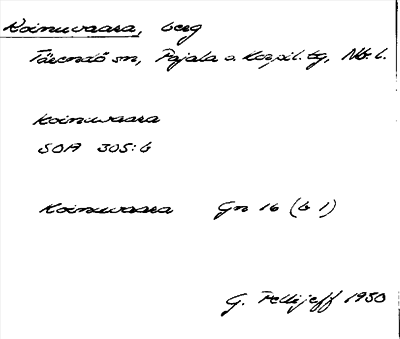 Koinuvaara, berg
Tärendö sn, Pajala o. Korpil. tg, Nb. l.
Koinuvaara
SOA 305:b
Koinuvaara Gn 16 (b 1)
G. Pellijeff 1950